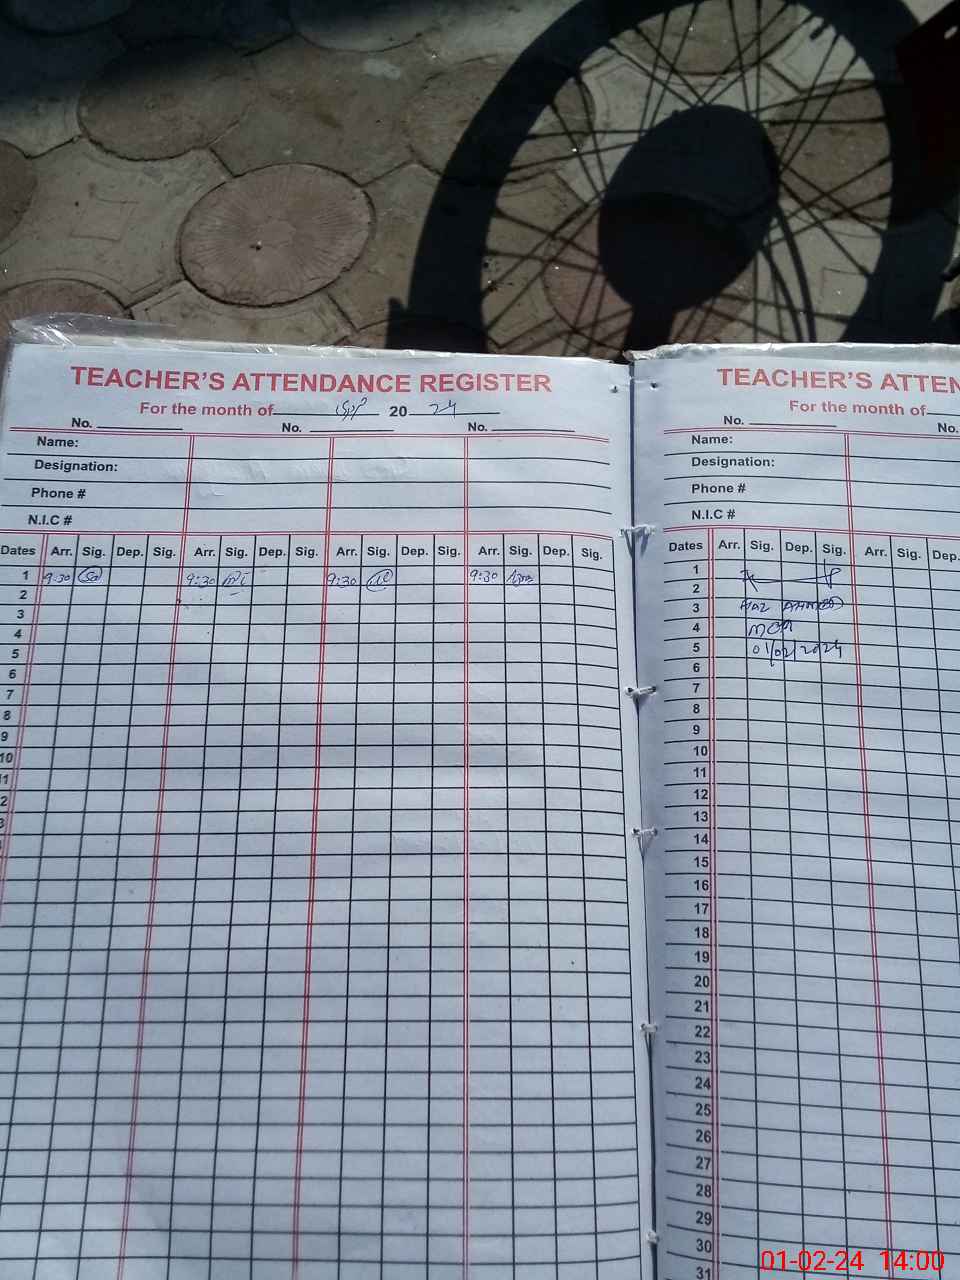 TEACHER'S ATTENDANCE REGISTER
For the month of فروری 20 24
No. No. No.
Name:
Designation:
Phone #
N.I.C #
Dates Arr. Sig. Dep. Sig. Arr. Sig. Dep. Sig. Arr. Sig. Dep. Sig. Arr. Sig. Dep. Sig.
1 9:30 9:30 9:30 9:30
2
3
4
5
6
7
8
9
10
11
2
3
TEACHER'S ATTEN
For the month of
No. No.
Name:
Designation:
Phone #
N.I.C #
Dates Arr. Sig. Dep. Sig. Arr. Sig. Dep.
1
2
3 AHMED
4 MEA
5 01/02/2024
6
7
8
9
10
11
12
13
14
15
16
17
18
19
20
21
22
23
24
25
26
27
28
29
30
31
01-02-24 14:00